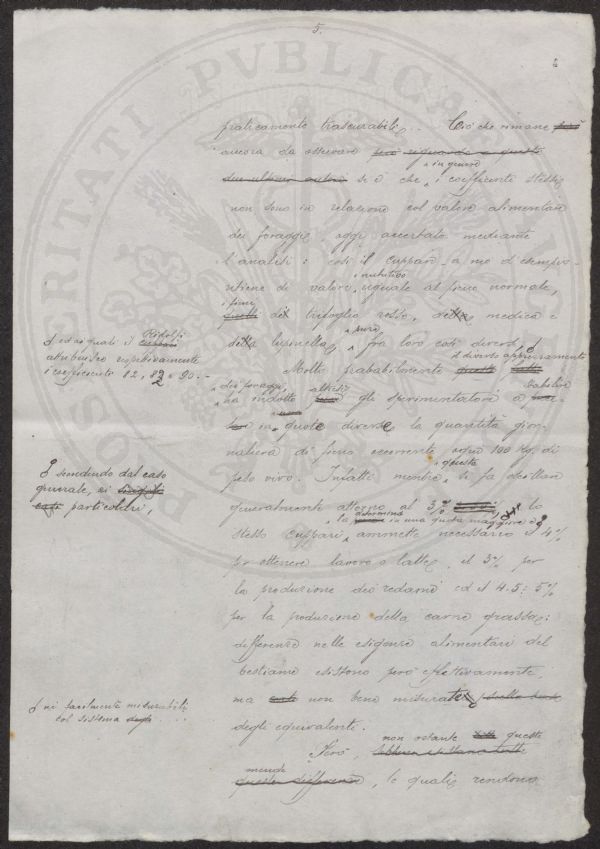 5.
praticamente trascurabili... Ciò che rimane però
ancora da osservare però riguardo a questi
due ultimi autori si è che, in genere i coefficienti stessi
non sono in relazione col valore alimentare
dei foraggi, oggi accertato mediante
l'analisi: così il Cuppari, a mo' d'esempio
ritiene di valore nutritivo uguale al fieno normale,
i fieni di trifoglio rosso, di medica e
di lupinella, pure fra loro così diversi,
ed ai quali il Ridolfi
attribuisce rispettivamente
i coefficienti 82, 83 e 90.-
Molto probabilmente il diverso apprezzamento
dei foraggi, ha indotto altresì gli sperimentatori a stabilire
in quote diverse la quantità giornaliera
di fieno occorrente ogni 100 Kg. di
peso vivo. Infatti mentre, questa si fa oscillare
generalmente attorno al 3%, lo
scendendo dal caso
generale, ai
casi particolari,
la determina in una quota maggiore e
stesso Cuppari, ammette necessario il 4%
per ottenere lavoro o latte, il 3% per
la produzione dei redami ed il 4.5 : 5%
per la produzione della carne grassa:
differenze nelle esigenze alimentari del
bestiame esistono però effettivamente,
ma non bene misurate
nè facilmente misurabili
col sistema degli
degli equivalenti.
Però, non ostante queste
mende, le quali rendono